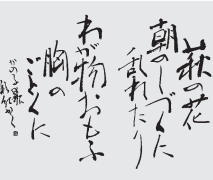 萩の花
朝のしづくに
乱れたり
わが物おもふ
胸の
ごとくに